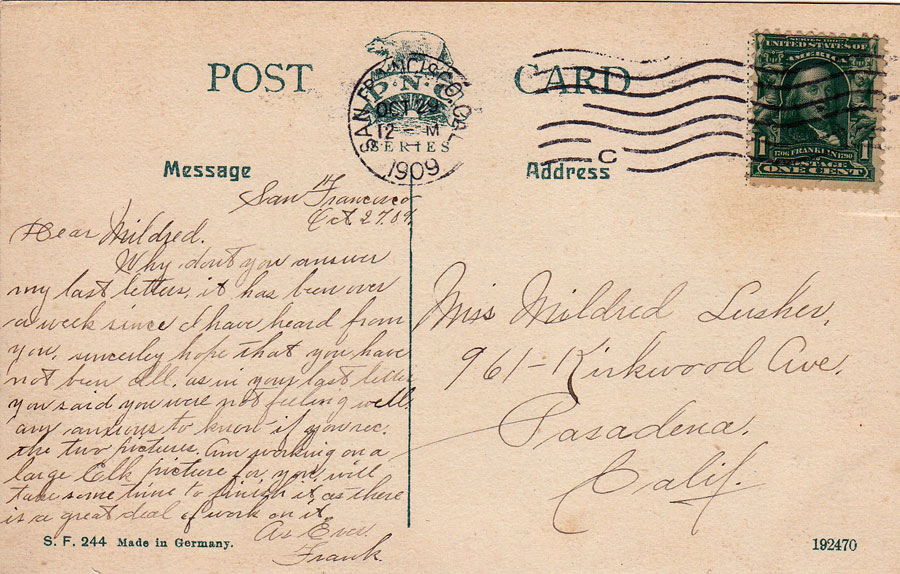 POST CARD
P·N·C
SERIES
SAN FRANCISCO, CAL.
OCT
12 - M
1909
C
SERIES 1902
UNITED STATES OF
AMERICA
1 1706 FRANKLIN 1790 1
POSTAGE
ONE CENT
Message
San Francisco
Oct 27, 09.
Dear Mildred.
Why dont you answer
my last letters, it has been over
a week since I have heard from
you, sincerley hope that you have
not been ill. as in your last letter
you said you were not feeling well,
am anxious to know if you rec.
the two pictures. Am working on a
large Elk picture for you, will
take some time to finish it, as there
is a great deal of work on it.
As Ever
Frank.
Address
Miss Mildred Lusher,
961-Kirkwood Ave.
Pasadena.
Calif.
S. F. 244 Made in Germany.
192470